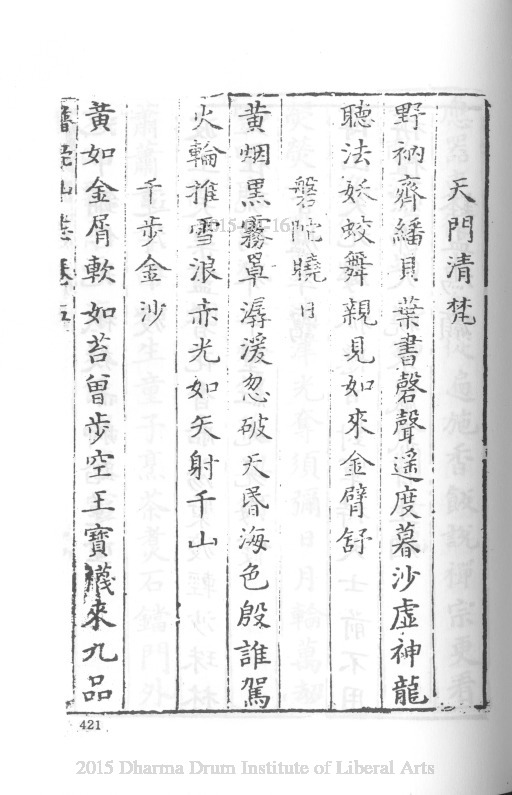 天門清梵
野衲齊繙貝葉書磬聲遥度暮沙虛神龍
聽法妖蛟舞親見如來金臂舒
磐陀曉日
黄烟黑霧罩潺湲忽破天昬海色殷誰駕
火輪推雪浪赤光如矢射千山
千步金沙
黄如金屑軟如苔曾步空王寶襪來九品
志卷五
421
2015 Dharma Drum Institute of Liberal Arts